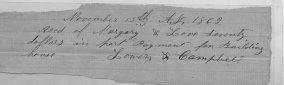 November 15th A.D. 1862
Recd of Margery & Love seventy
dollars in part Payment for Building
house Lowery & Campbell